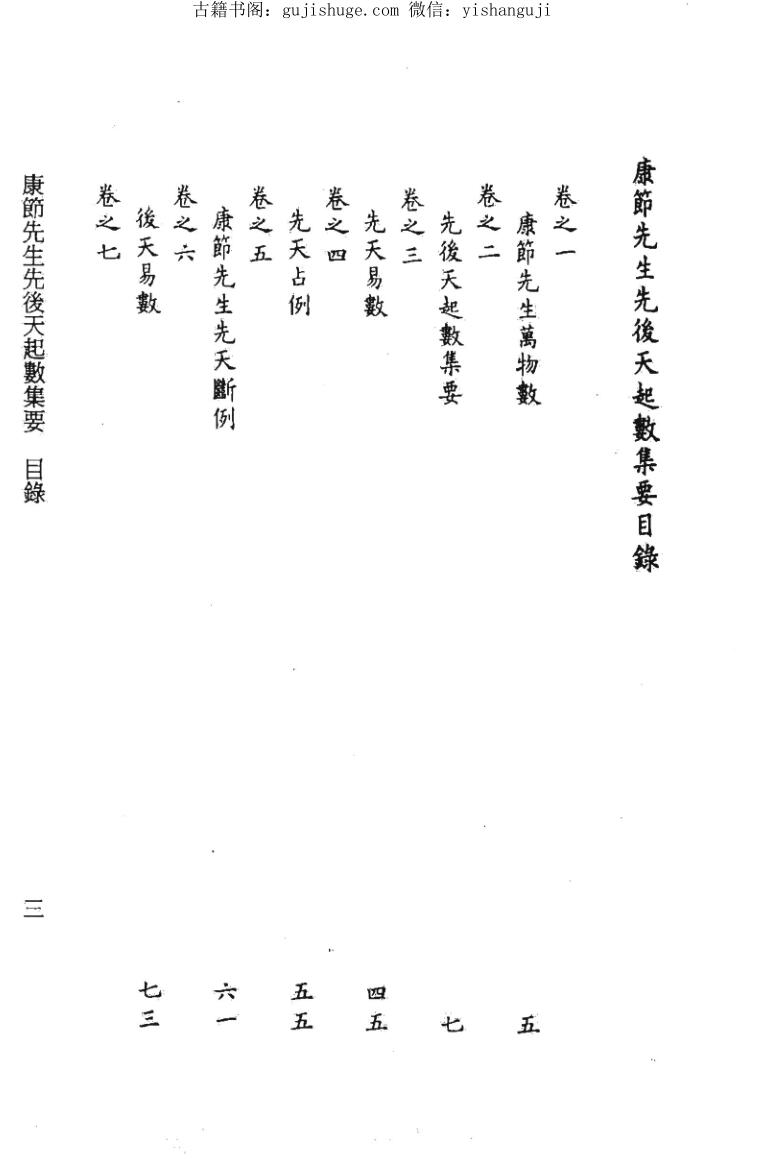 古籍书阁：gujishuge.com 微信：yishanguji
康節先生先後天起數集要目錄
卷之一
康節先生萬物數 五
卷之二
先後天起數集要 七
卷之三
先天易數 四五
卷之四
先天占例 五五
卷之五
康節先生先天斷例 六一
卷之六
後天易數 七三
卷之七
康節先生先後天起數集要 目錄 三